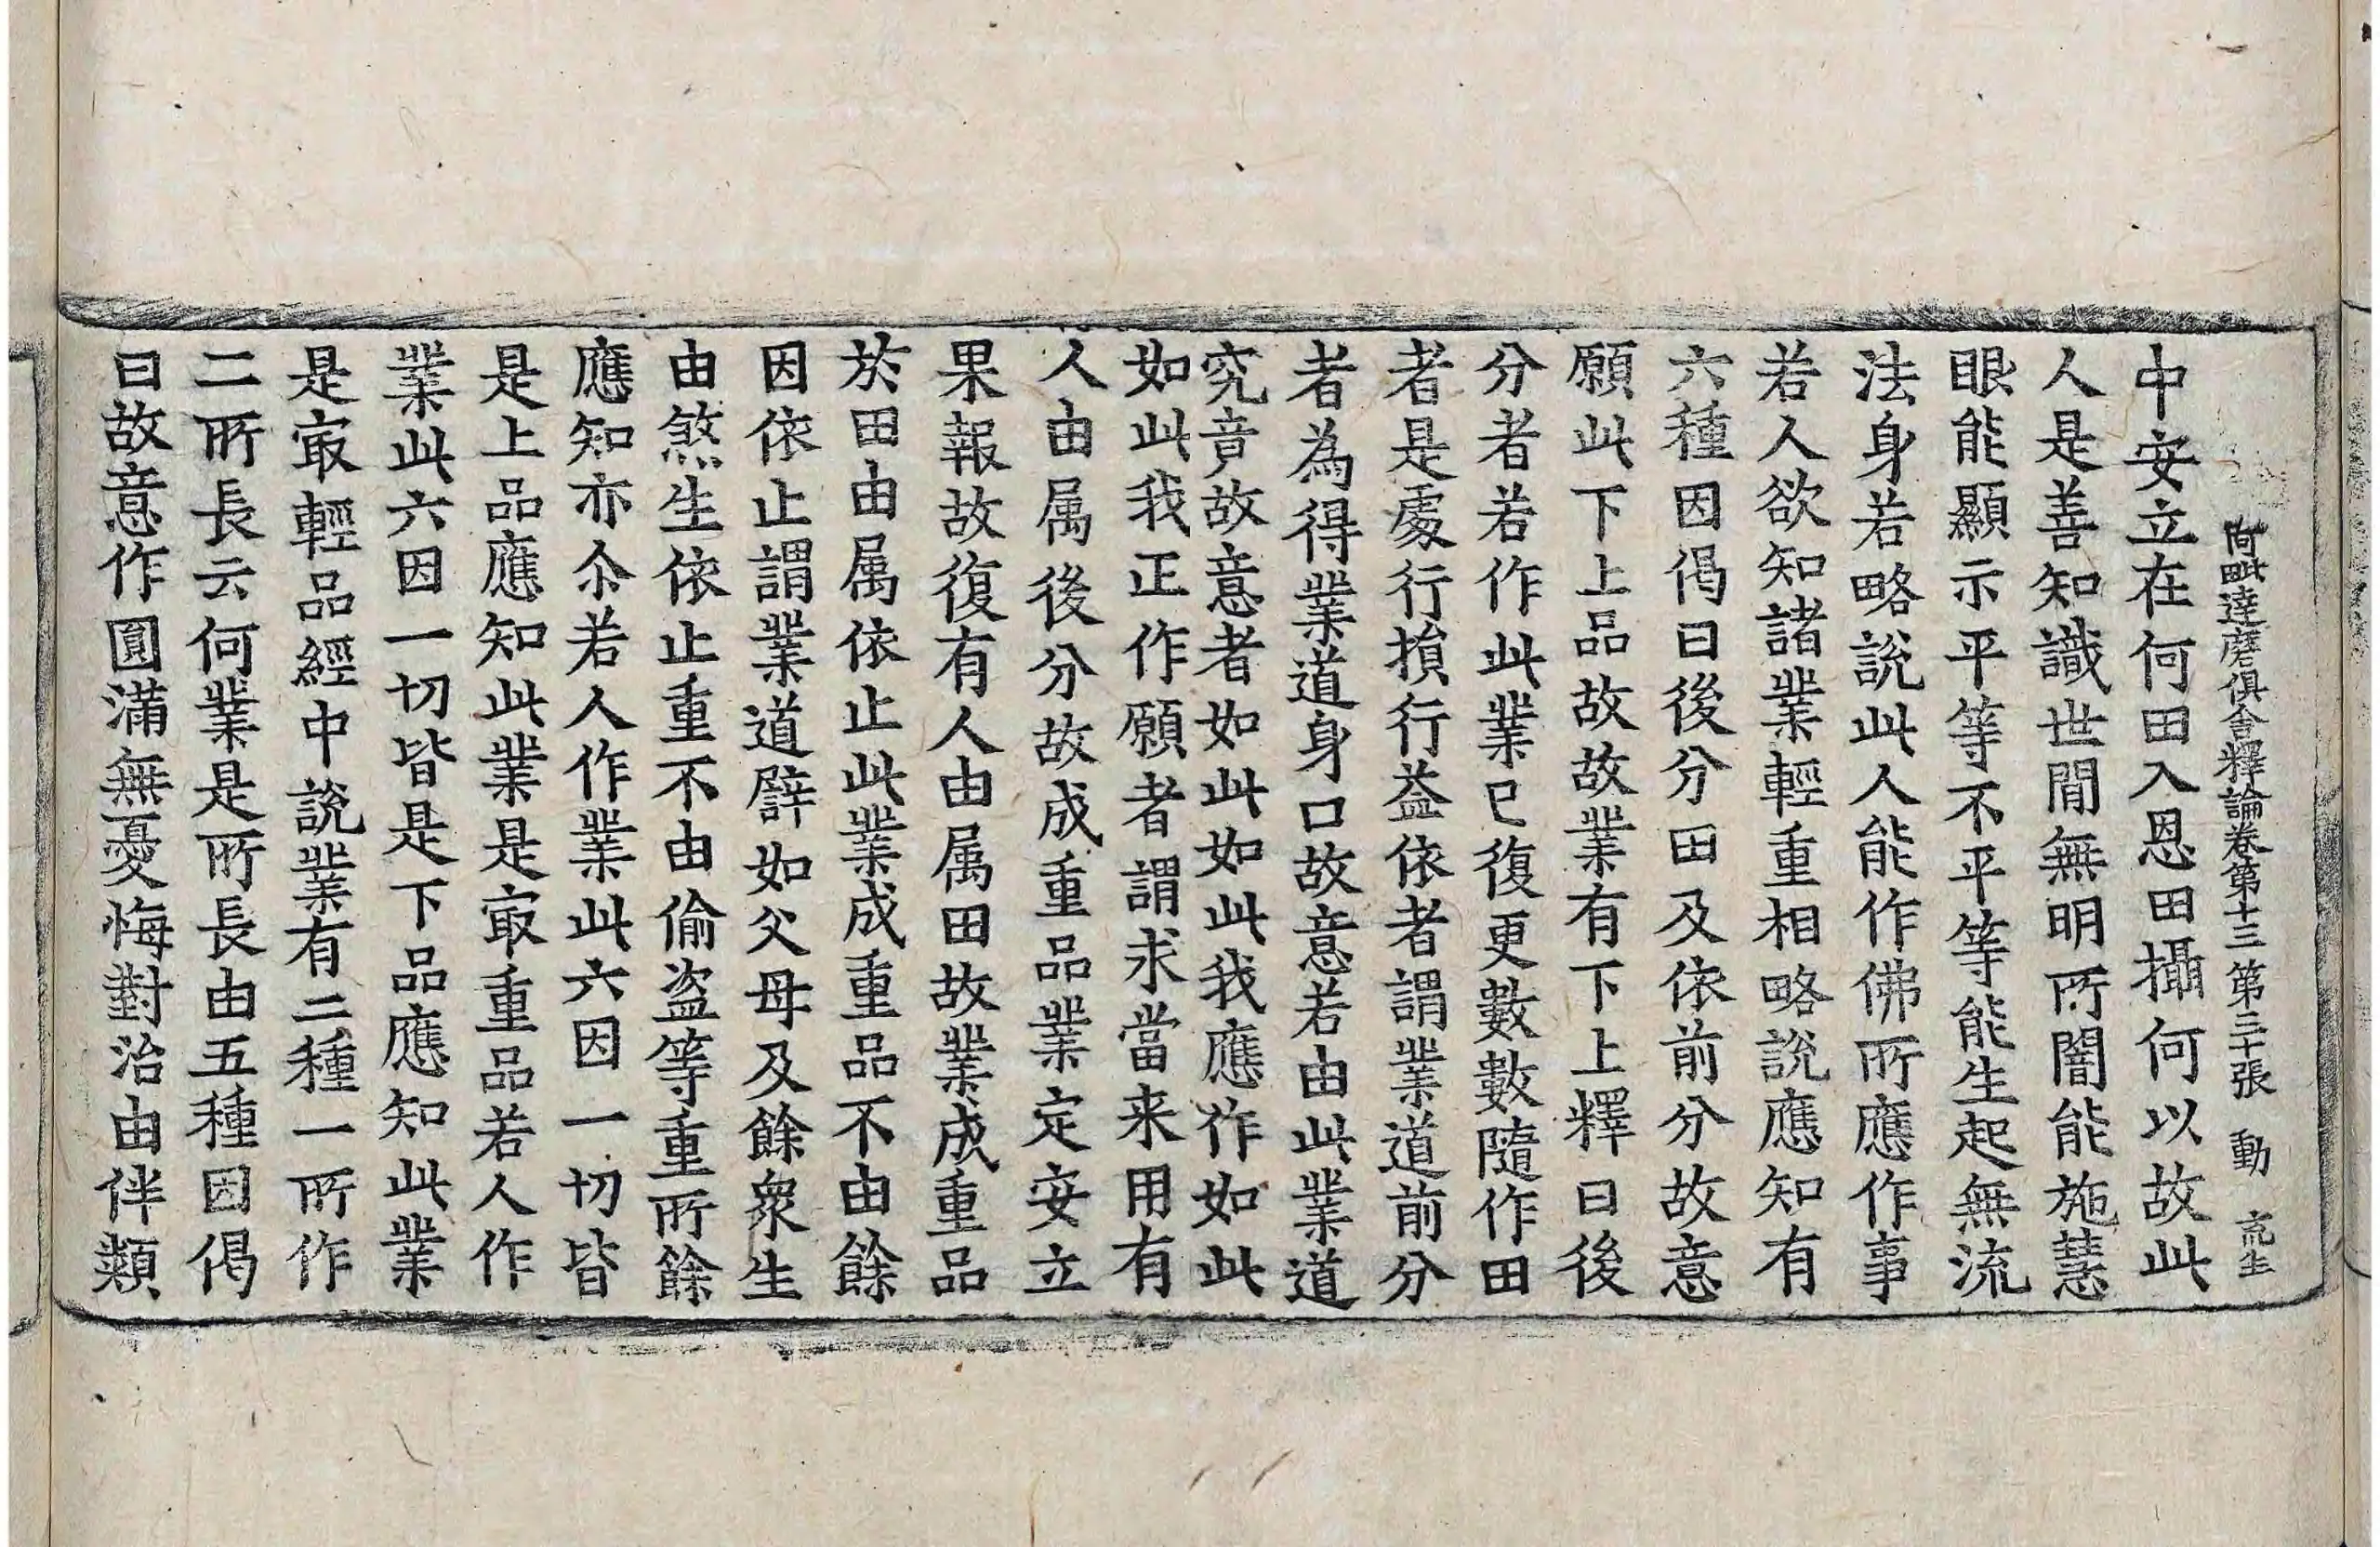 阿毗達磨俱舍釋論卷第十三 第三十張 動 亮生
中安立在何田入恩田攝何以故此
人是善知識世間無明所闇能施慧
眼能顯示平等不平等能生起無流
法身若略說此人能作佛所應作事
若人欲知諸業輕重相略說應知有
六種因偈曰後分田及依前分故意
願此下上品故故業有下上釋曰後
分者若作此業已復更數數隨作田
者是處行損行益依者謂業道前分
者為得業道身口故意若由此業道
究竟故意者如此如此我應作如此
如此我正作願者謂求當来用有
人由属後分故成重品業定安立
果報故復有人由属田故業成重品
於田由属依止此業成重品不由餘
因依止謂業道譬如父母及餘衆生
由煞生依止重不由偷盗等重所餘
應知亦尒若人作業此六因一切皆
是上品應知此業是㝡重品若人作
業此六因一切皆是下品應知此業
是㝡輕品經中說業有二種一所作
二所長云何業是所長由五種因偈
曰故意作圓滿無憂悔對治由伴類